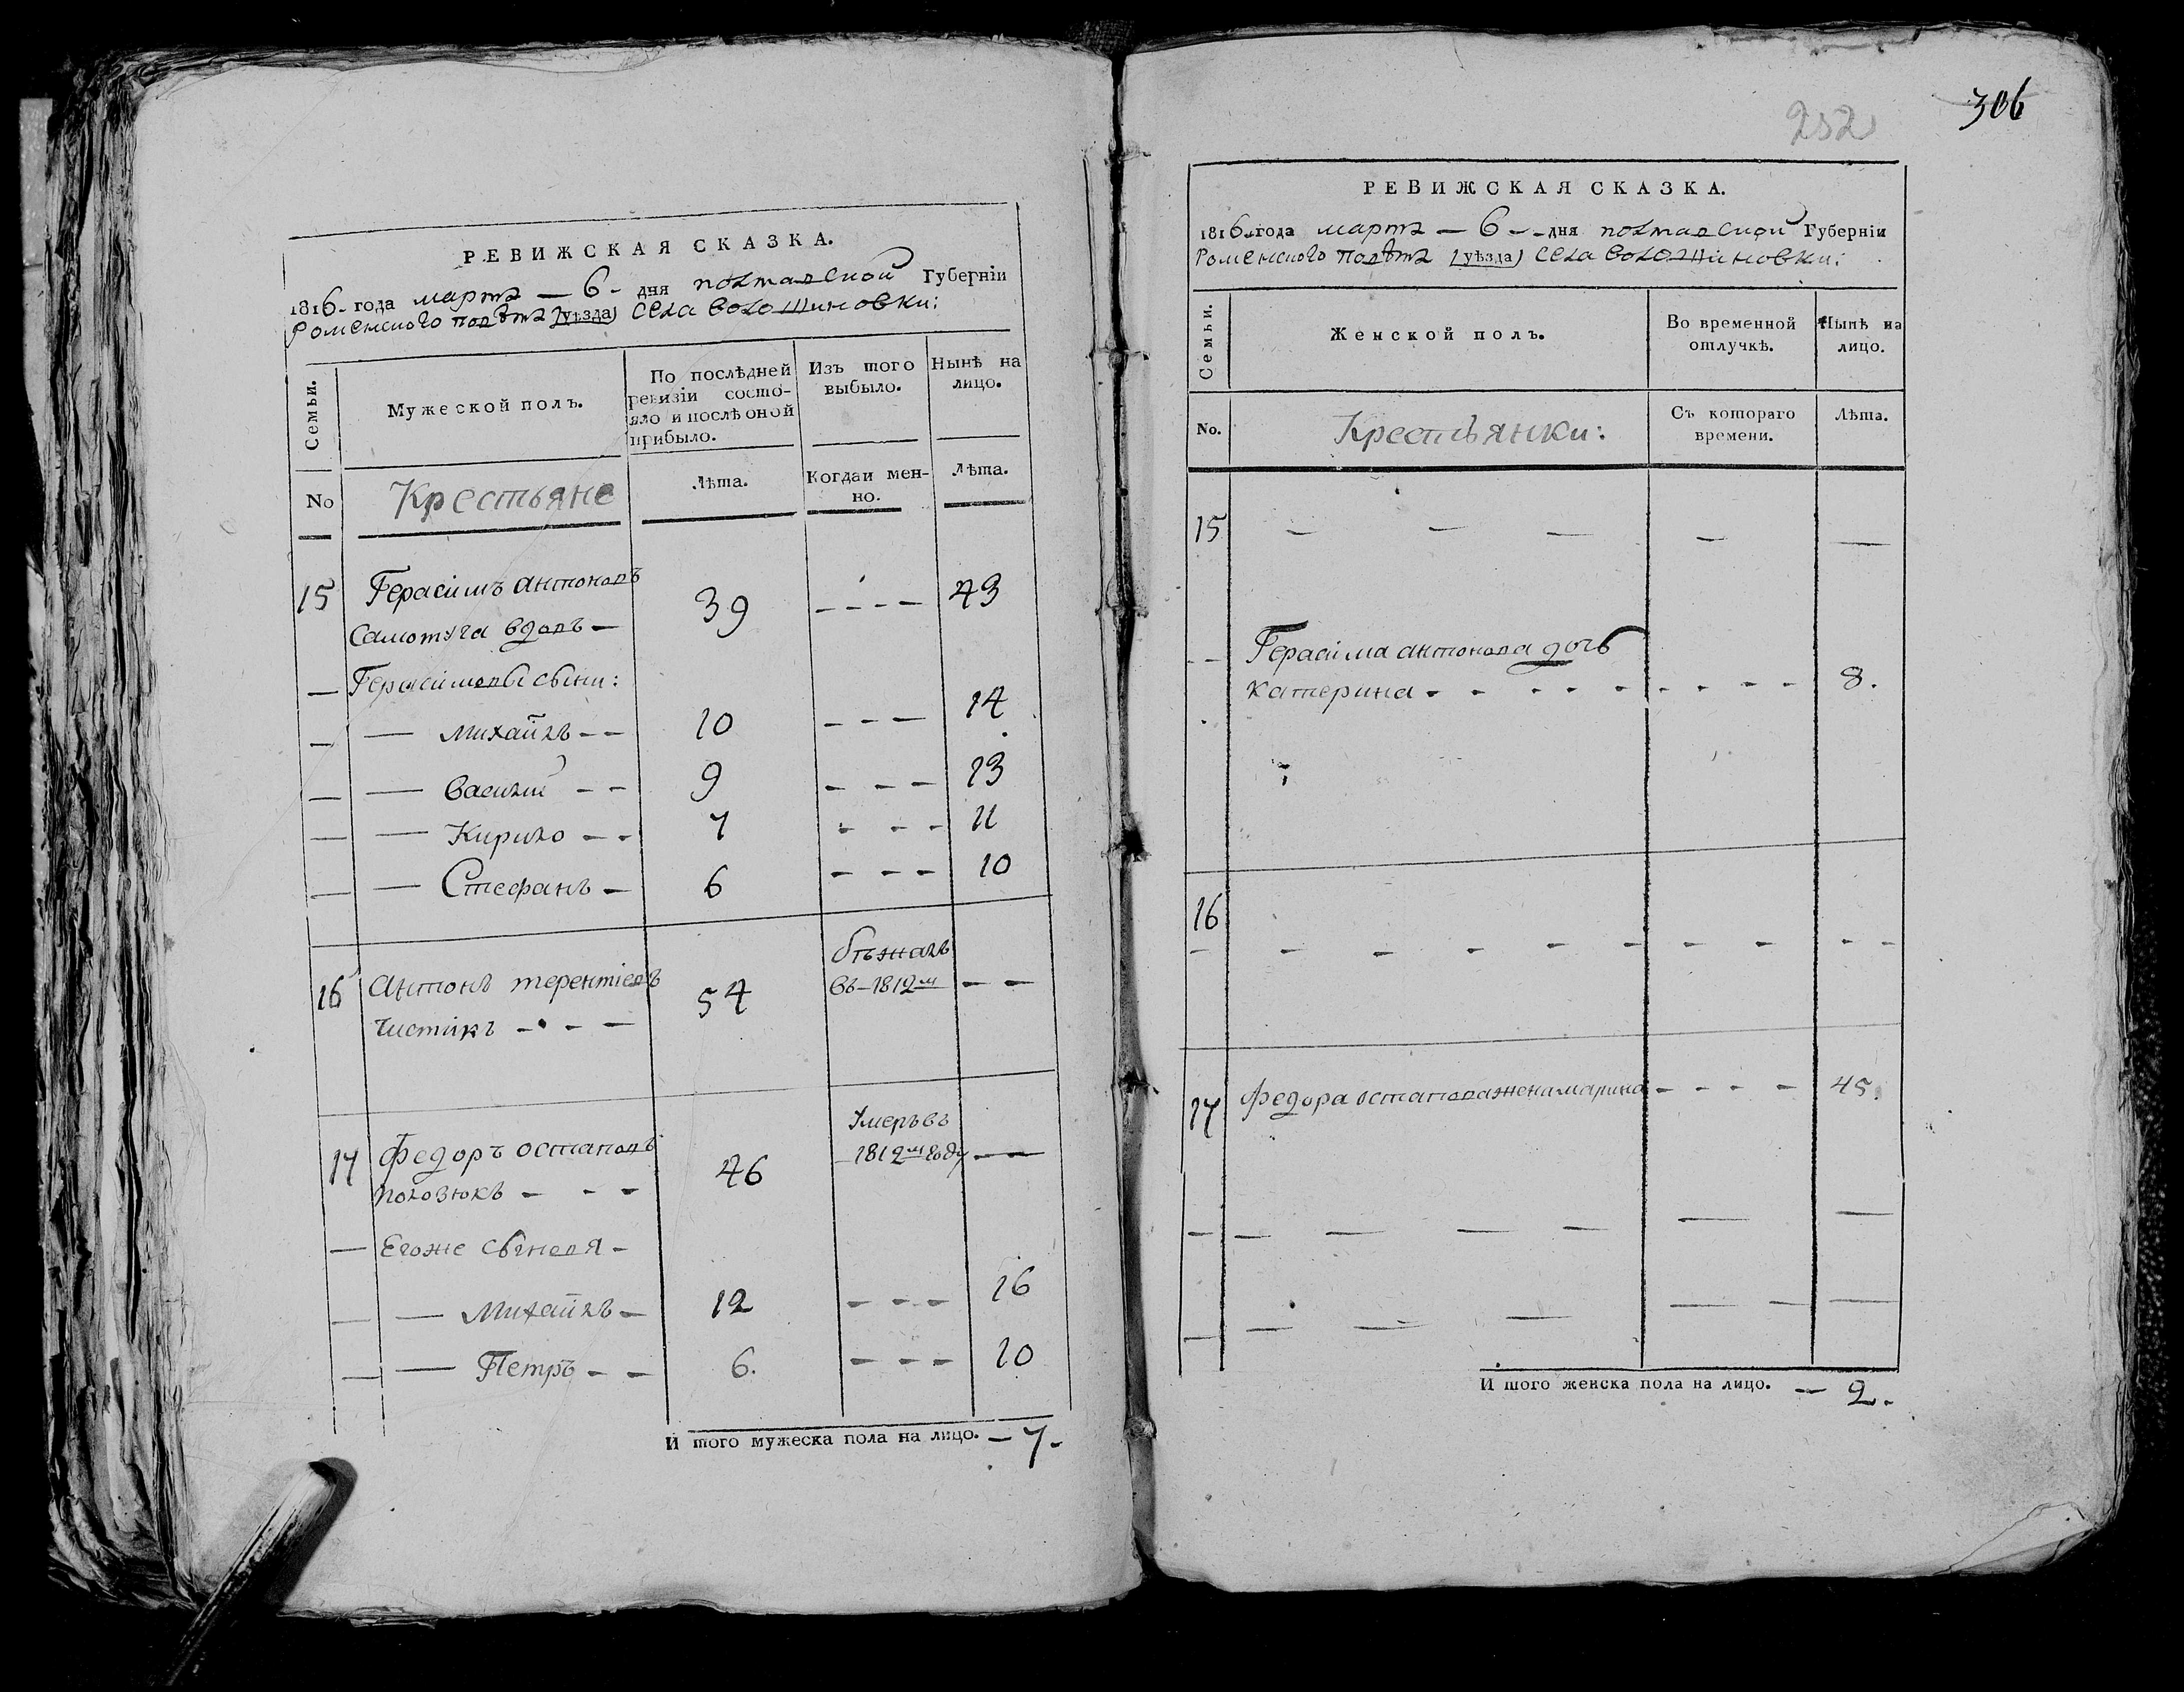 РЕВИЖСКАЯ СКАЗКА.
1816. года мартъ — 6 - дня полтавской Губерніи
Роменского повѣта (уѣзда) села волошиновки:
Семьи.
Мужеской полъ.
По послѣдней
ревизіи состо-
яло и послѣ оной
прибыло.
Изъ того
выбыло.
Нынѣ на
лицо.
No
Крестьяне
Лѣта.
Когда и мен-
но.
Лѣта.
15 Герасимъ антоновъ
Самотуга вдовъ — 39 - - - - 43
— Герасимовы сыни:
— — михайлъ - - 10 - - - 14
— — василий - - 9 - - - 13
— — Кирило - - 7 - - - 11
— — Стефанъ - 6 - - - 10
16 антонъ терентіевъ 54 бѣжалъ
Чистикъ - - - въ - 1812м - -
17 федоръ остаповъ 46 Умеръ въ
полозюкъ - - - 1812м году —
— Егоже сыновя -
— — Михайлъ - 12 - - - 16
— — Петръ - - 6. - - - 10
И того мужеска пола на лицо. — 7 -
252
306
РЕВИЖСКАЯ СКАЗКА.
1816 года мартъ — 6 - - дня полтавской Губерніи
Роменского повѣта (уѣзда) села волошиновки:
Семьи.
Женской полъ.
Во временной
отлучкѣ.
Нынѣ на
лицо.
No.
Крестьянки:
Съ котораго
времени.
Лѣта.
15 — — — — —
- - Герасима антонова дочь
катерина - - - - - - - - - - 8.
16
- - - - - - - - - -
17 федора остапова жена марина - - - - 45.
— — — — — — —
— — — — — — —
И того женска пола на лицо. — 2.